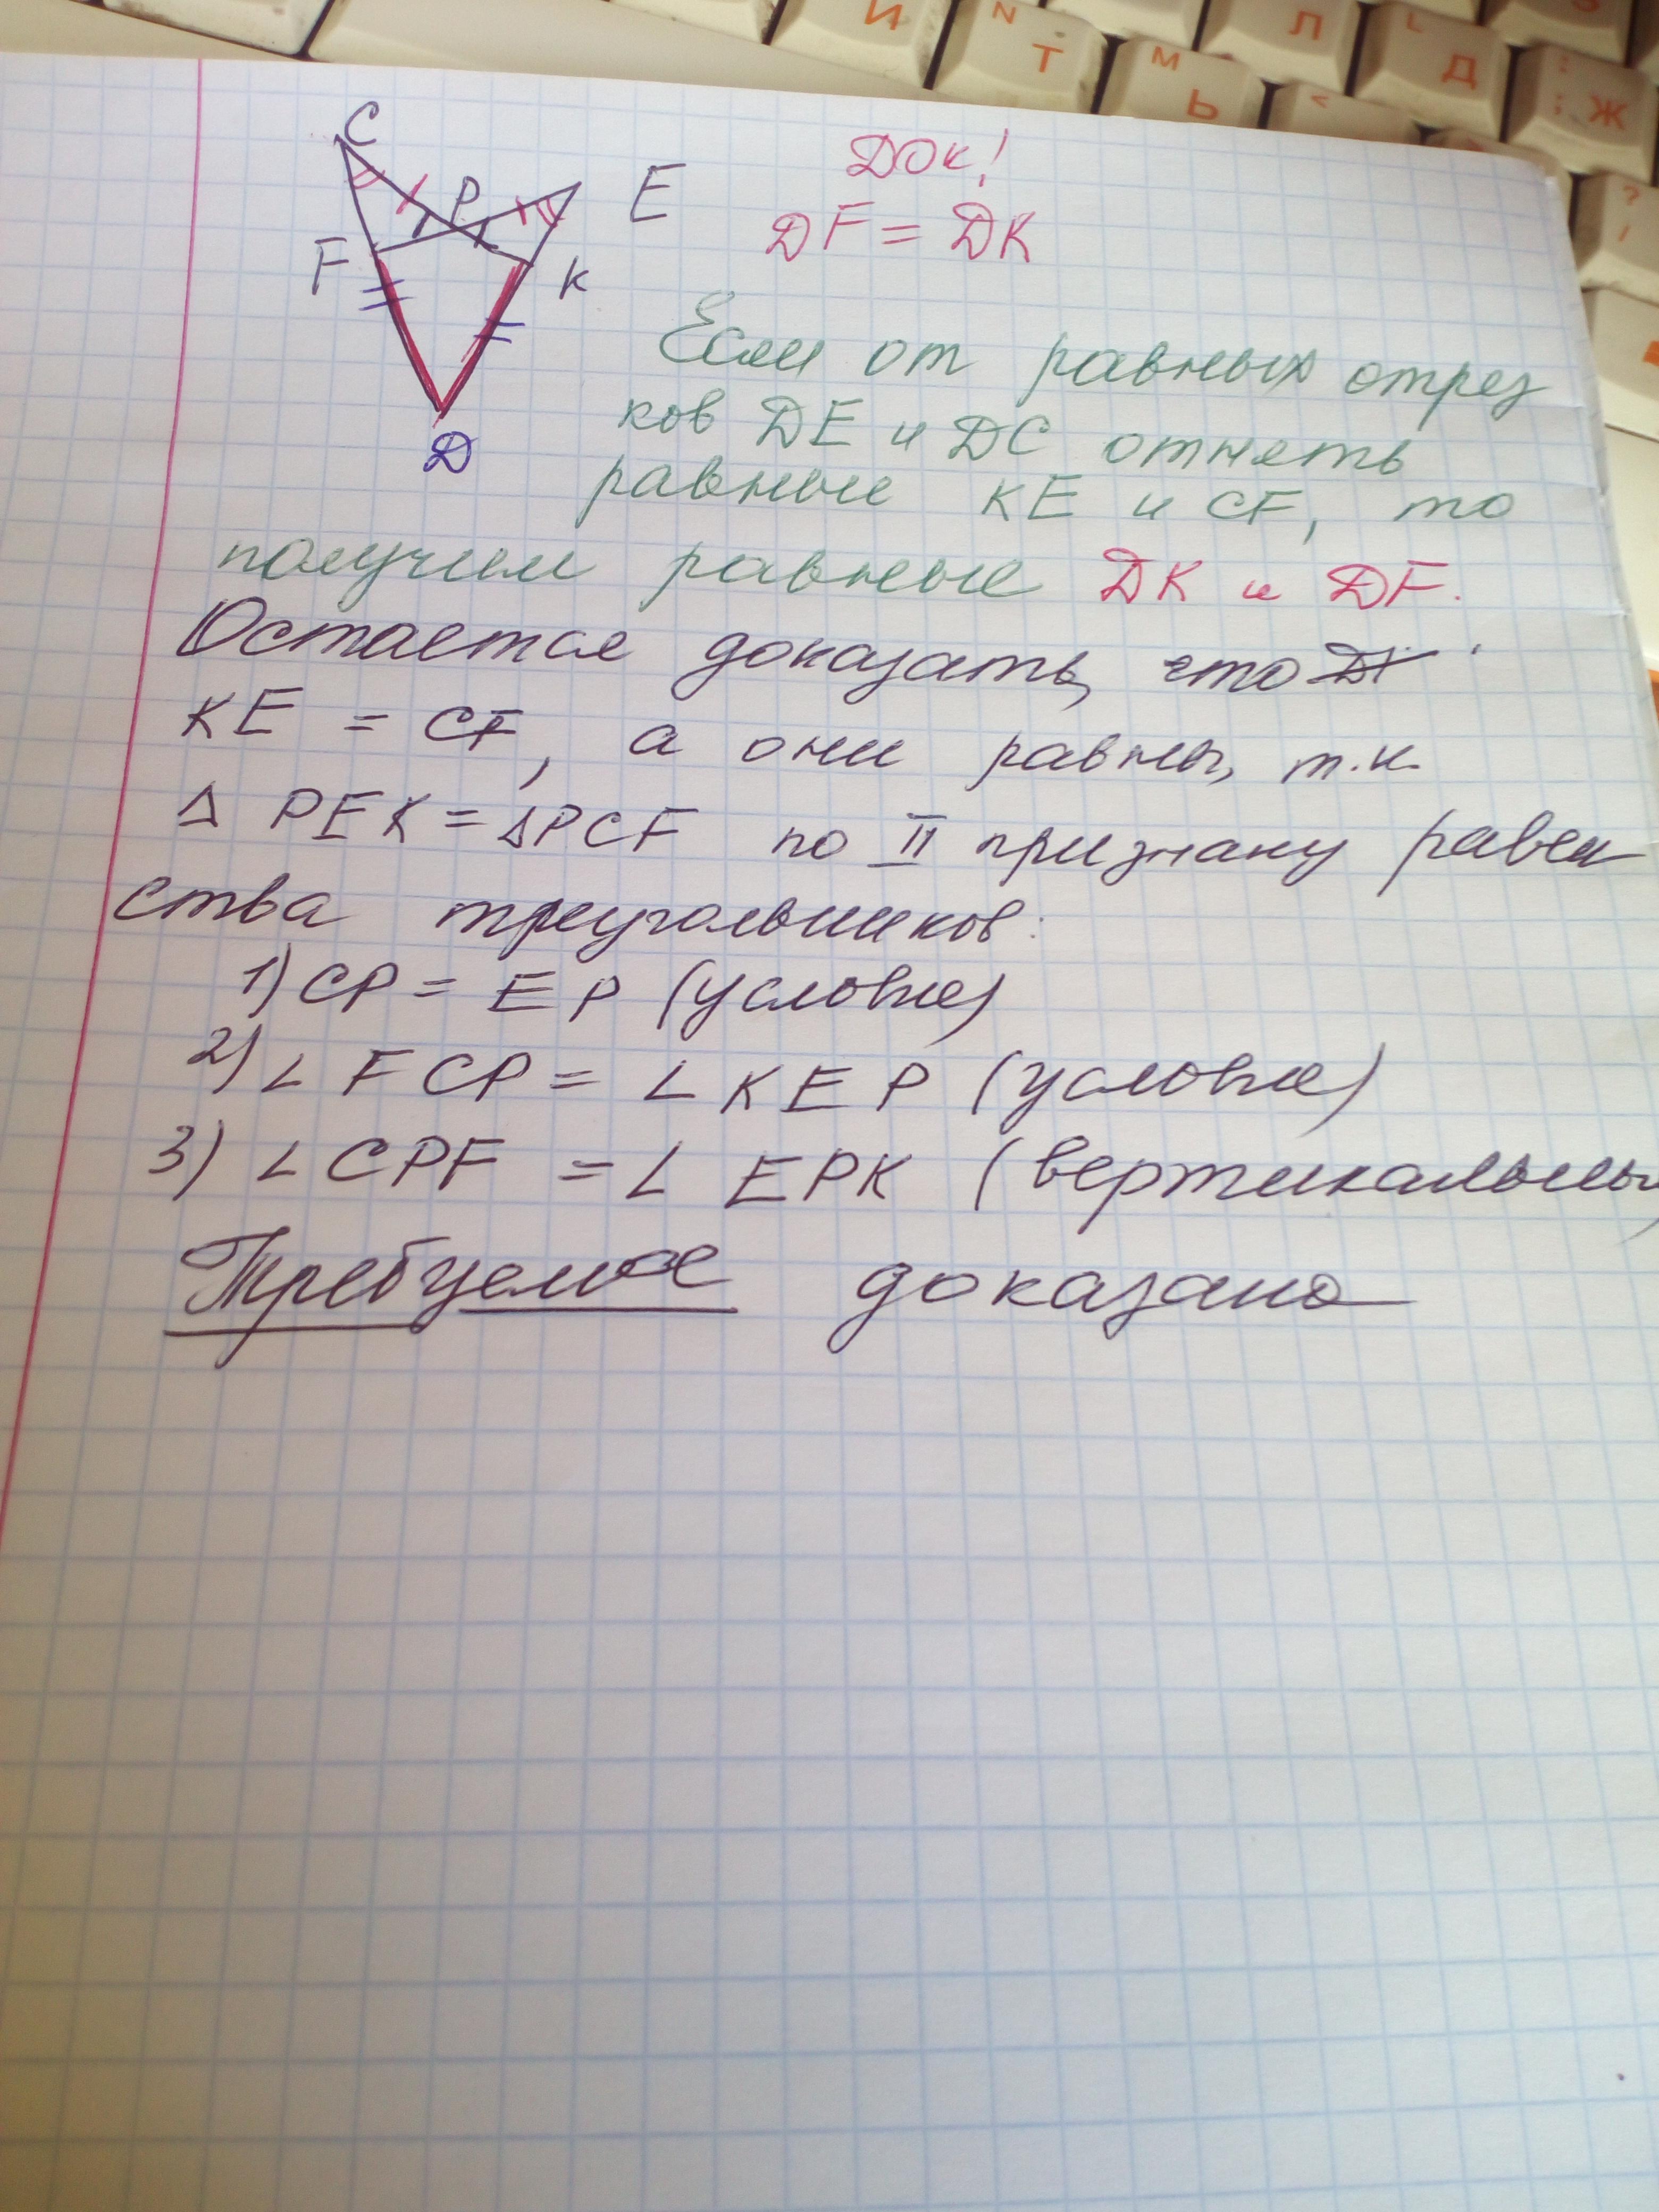 И
N
Т
M
Ь
<
Л
L
Д
:
;
Ж
?
/
C
P
E
F
K
D
Док!
DF = DK
Если от равных отрез
ков DE и DC отнять
равные KE и CF, то
получим равные DK и DF.
Остаётся доказать, что
KE = CF, а они равны, т.к.
Δ PEK = Δ PCF по II признаку равен
ства треугольников:
1) CP = EP (условие)
2) ∠ FCP = ∠ KEP (условие)
3) ∠ CPF = ∠ EPK (вертикальны
Требуемое доказано